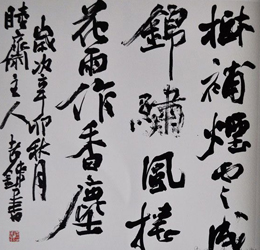 補煙雲成
錦繡風捲
花雨作香塵
歲次辛卯秋月
睦齋主人書